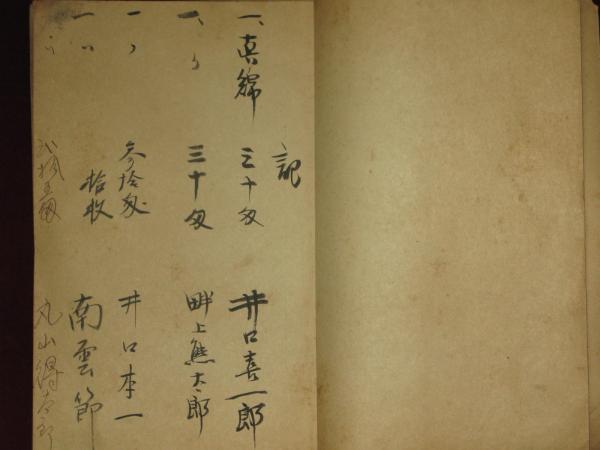 記
一、真綿 三十匁 井口喜一郎
一、〃 三十匁 畔上熊太郎
一〃 参拾匁 井口本一
一〃 拾枚 南雲節
〃 弐拾五匁 丸山得太郎